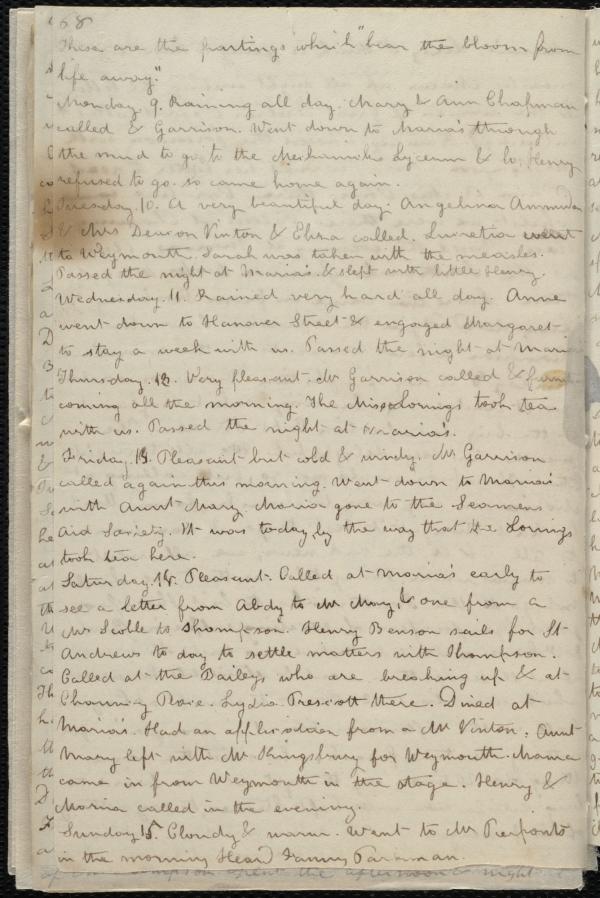 68
These are the partings which "bear the bloom from
life away."
Monday. 9. Raining all day. Mary & Ann Chapman
called & Garrison. Went down to Maria's through
the mud to go to the Mechanicks Lyceum & lo, Henry
refused to go. so came home again.
Tuesday. 10. A very beautiful day. Angelina Ammidon
& Mrs Deacon Vinton & Eliza called. Lucretia went
to Weymouth. Sarah was taken with the measles.
Passed the night at Maria's. & slept with little Henry.
Wednesday. 11. Rained very hard all day. Anne
went down to Hanover Street & engaged Margaret
to stay a week with us. Passed the night at Maria
Thursday. 12. Very pleasant. Mr Garrison called &
coming all the morning. The Miss Lorings took tea
with us. Passed the night at Maria's.
Friday. 13. Pleasant but cold & windy. Mr Garrison
called again this morning. Went down to Maria's
with Aunt Mary. Maria gone to the Seamens
Aid Society. It was today, by the way that the Lorings
took tea here.
Saturday. 14. Pleasant. Called at Maria's early to
see a letter from Abdy to Mr May, & one from a
Mr Scoble to Thompson. Henry Benson sails for St
Andrews to day to settle matters with Thompson.
Called at the Baileys who are breaking up & at
Chauncy Place. Lydia Prescott there. Dined at
Maria's. Had an application from a Mr Vinton. Aunt
Mary left with Mr Kingsbury for Weymouth. Mama
came in from Weymouth in the stage. Henry &
Maria called in the evening.
Sunday 15. Cloudy & warm. Went to Mr Pierponts
in the morning Heard Francis Parkman.
spent the afternoon & night